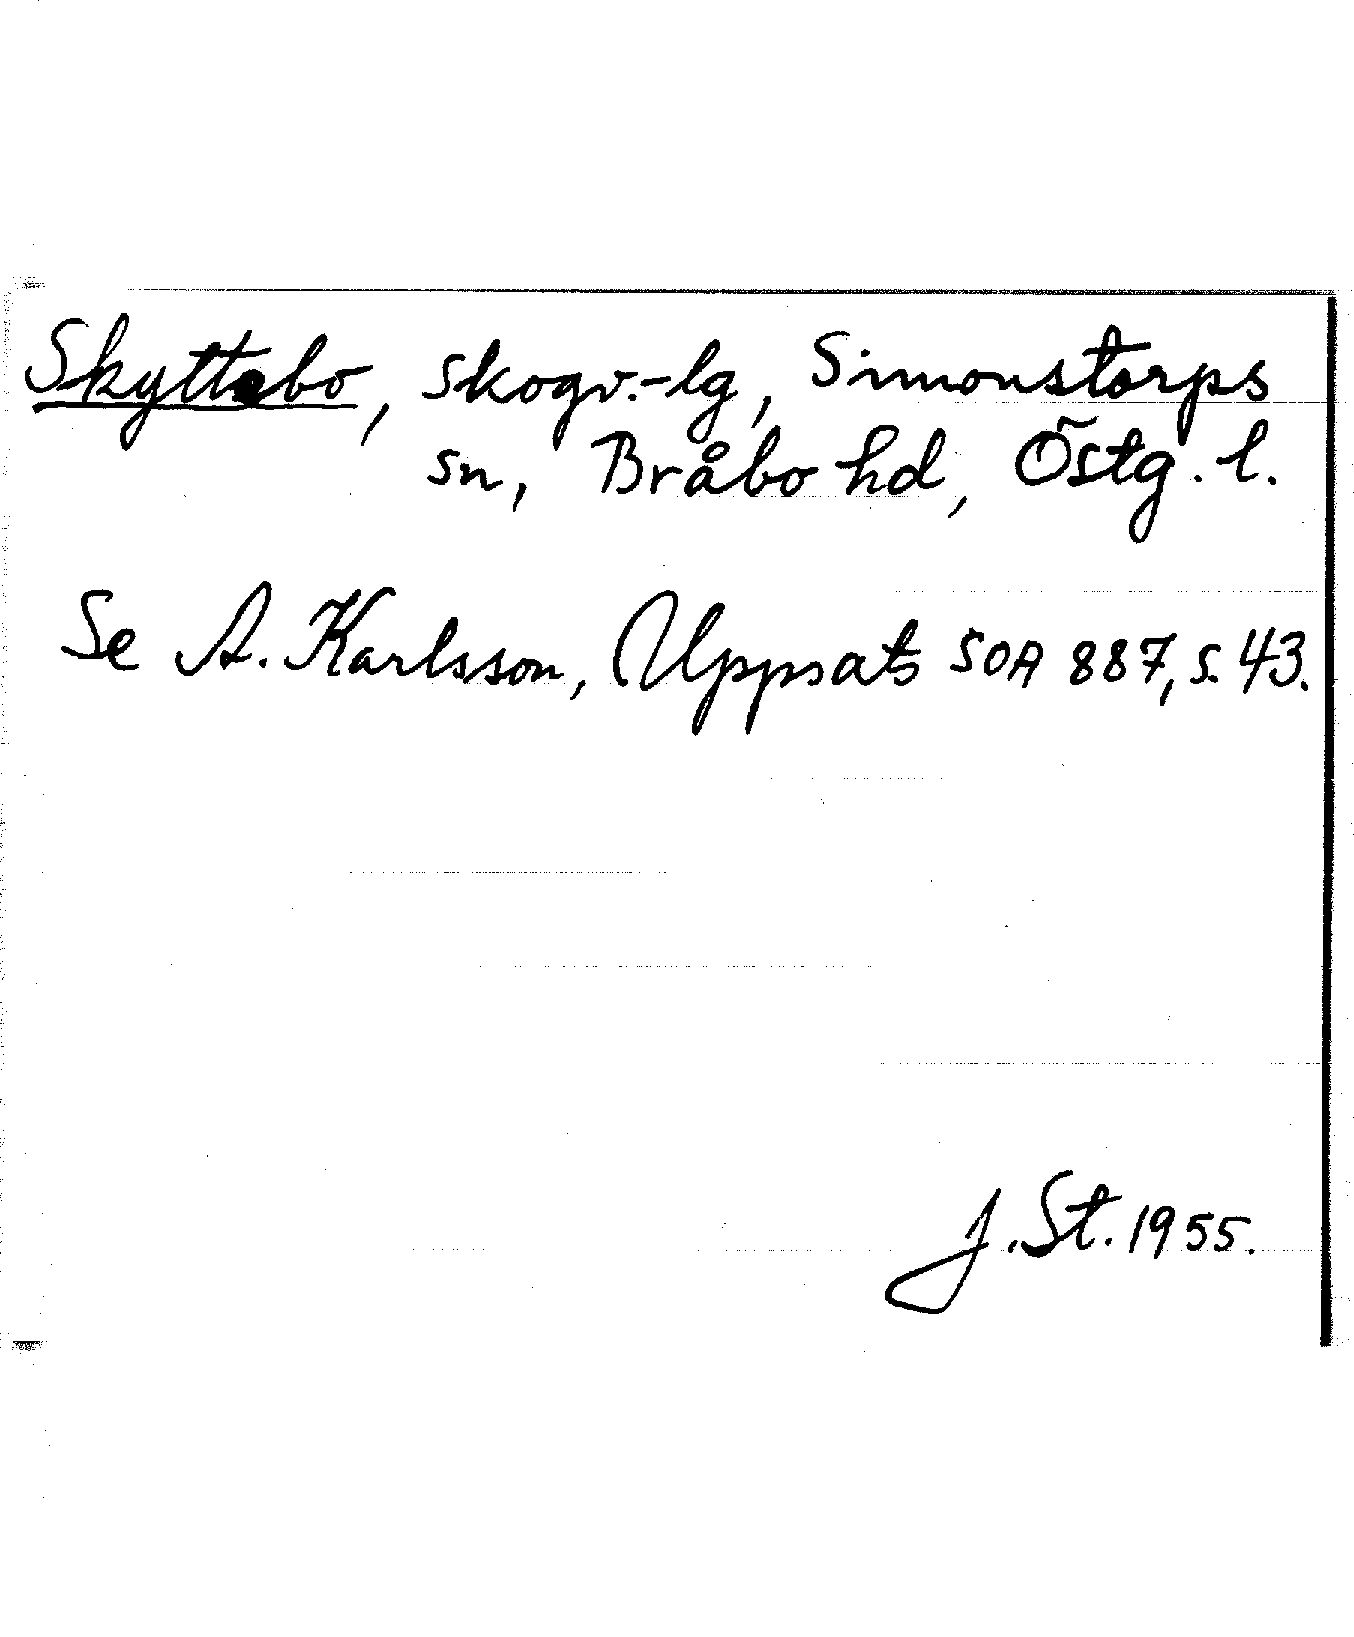 Skyttebo, skogv.-lg, Simonstorps
sn, Bråbo hd, Östg. l.
Se A. Karlsson, Uppsats SOA 887, s. 43.
J. St. 1955.